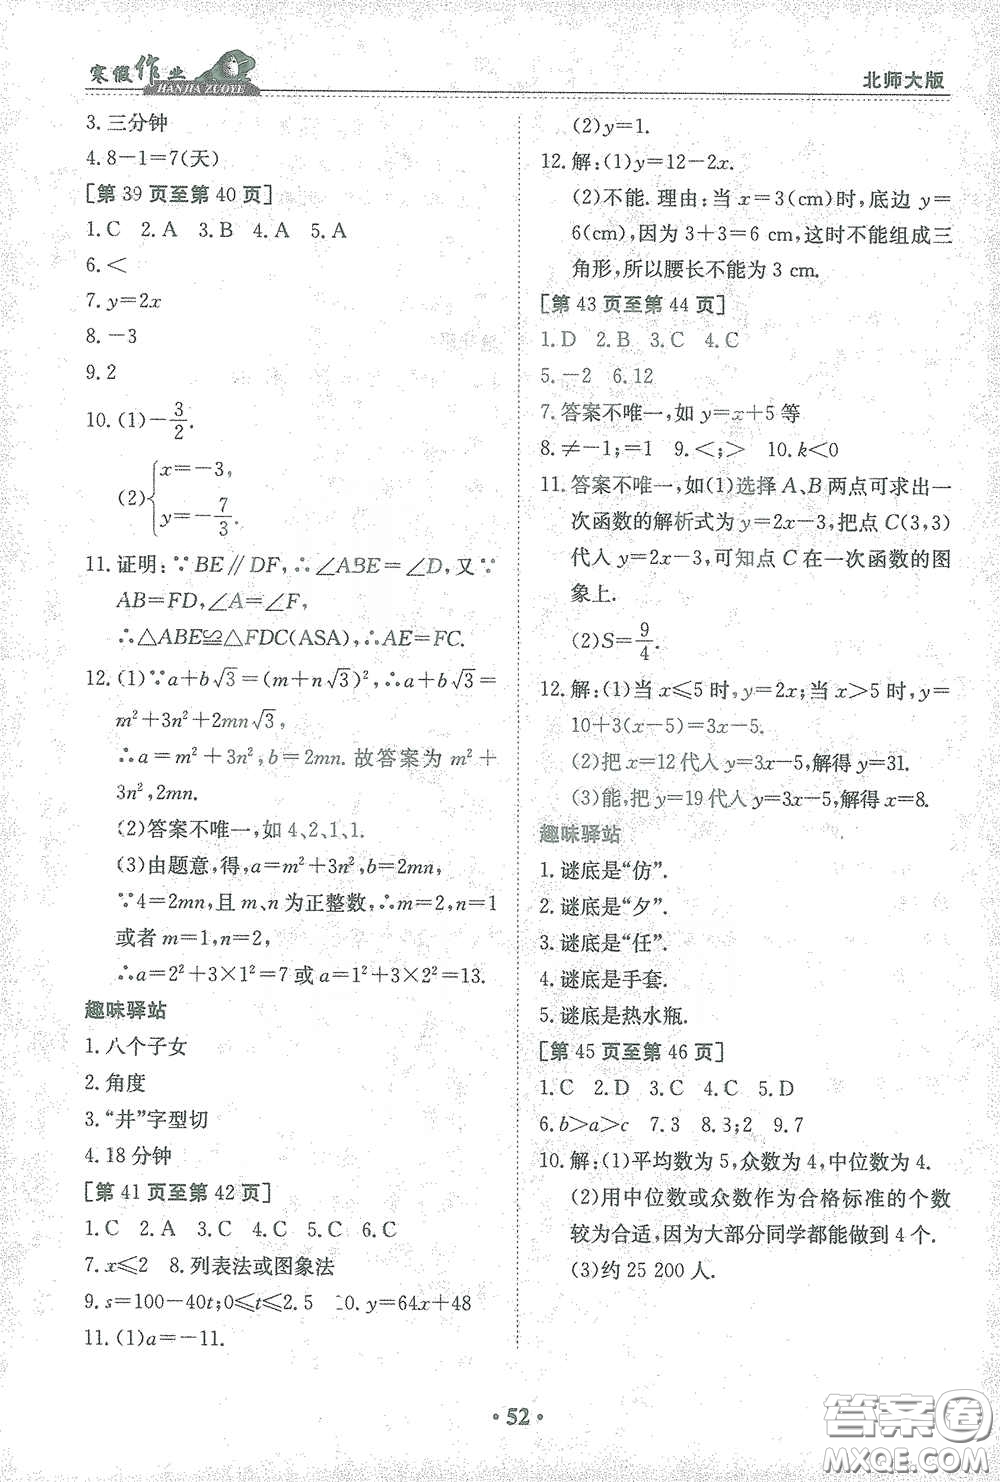 寒假作业
HANJIA ZUOYE
北师大版
3. 三分钟
4. 8－1＝7(天)
[第 39 页至第 40 页]
1. C　2. A　3. B　4. A　5. A
6. ＜
7. y＝2x
8. －3
9. 2
10. (1)－3/2.
(2){x＝－3,
y＝－7/3.
11. 证明:∵BE∥DF,∴∠ABE＝∠D,又∵
AB＝FD,∠A＝∠F,
∴△ABE≌△FDC(ASA),∴AE＝FC.
12. (1)∵a＋b√3＝(m＋n√3)²,∴a＋b√3＝
m²＋3n²＋2mn√3,
∴a＝m²＋3n²,b＝2mn. 故答案为 m²＋
3n²,2mn.
(2)答案不唯一,如 4、2、1、1.
(3)由题意,得,a＝m²＋3n²,b＝2mn,
∵4＝2mn,且 m、n 为正整数,∴m＝2,n＝1
或者 m＝1,n＝2,
∴a＝2²＋3×1²＝7 或 a＝1²＋3×2²＝13.
趣味驿站
1. 八个子女
2. 角度
3. “井”字型切
4. 18 分钟
[第 41 页至第 42 页]
1. C　2. A　3. C　4. C　5. B　6. C
7. x≤2　8. 列表法或图象法
9. s＝100－40t;0≤t≤2.5　10. y＝64x＋48
11. (1)a＝－11.
(2)y＝1.
12. 解:(1)y＝12－2x.
(2)不能. 理由:当 x＝3(cm)时,底边 y＝
6(cm),因为 3＋3＝6 cm,这时不能组成三
角形,所以腰长不能为 3 cm.
[第 43 页至第 44 页]
1. D　2. B　3. C　4. C
5. －2　6. 12
7. 答案不唯一,如 y＝x＋5 等
8. ≠－1;＝1　9. ＜;＞　10. k＜0
11. 答案不唯一,如(1)选择 A、B 两点可求出一
次函数的解析式为 y＝2x－3,把点 C(3,3)
代入 y＝2x－3,可知点 C 在一次函数的图
象上.
(2)S＝9/4.
12. 解:(1)当 x≤5 时,y＝2x;当 x＞5 时,y＝
10＋3(x－5)＝3x－5.
(2)把 x＝12 代入 y＝3x－5,解得 y＝31.
(3)能,把 y＝19 代入 y＝3x－5,解得 x＝8.
趣味驿站
1. 谜底是“仿”.
2. 谜底是“夕”.
3. 谜底是“任”.
4. 谜底是手套.
5. 谜底是热水瓶.
[第 45 页至第 46 页]
1. C　2. D　3. B　4. C　5. C
6. b＞a＞c　7. 3　8. 3;2　9. 7
10. 解:(1)平均数为 5,众数为 4,中位数为 4.
(2)用中位数或众数作为合格标准的个数
较为合适,因为大部分同学都能做到 4 个.
(3)约 25 200 人.
·52·
答案圈
MXQE.COM